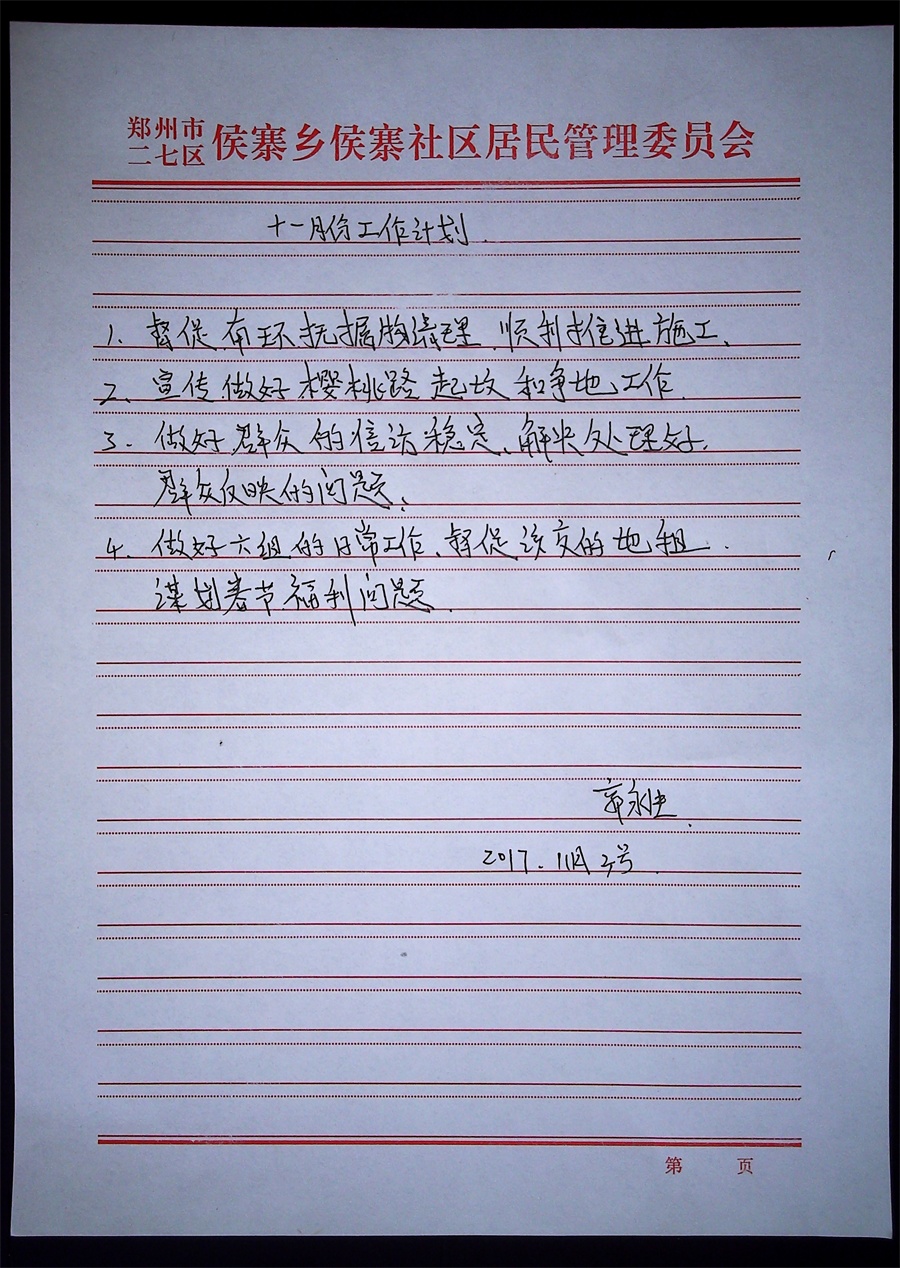 郑州市
二七区 侯寨乡侯寨社区居民管理委员会
十一月份工作计划.
1. 督促 清理. 顺利推进施工.
2. 宣传做好樱桃路起坟和争地工作.
3. 做好群众的信访稳定、解决处理好.
群众反映的问题.
4. 做好六组的日常工作、督促该交的地租.
谋划春节福利问题.
2017. 11月 号.
第 页